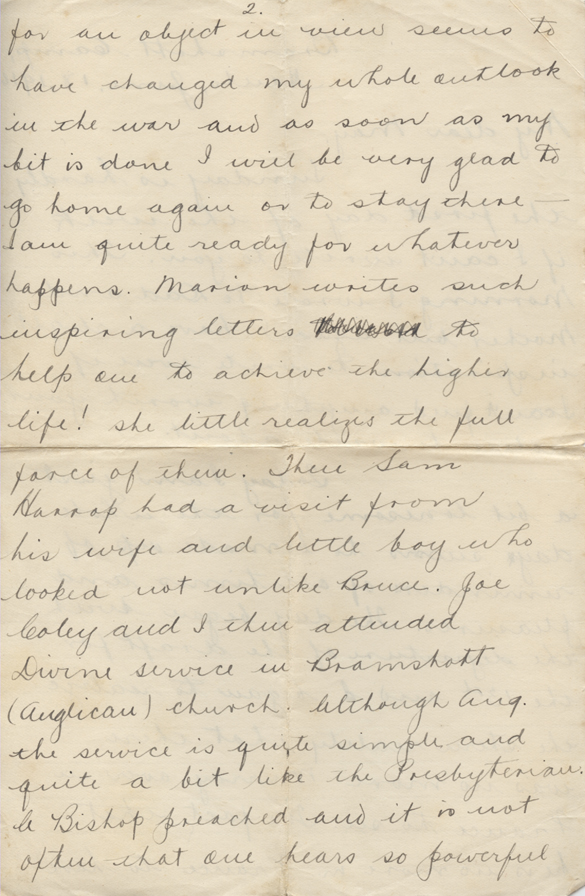 2.
for an object in view seems to
have changed my whole outlook
in the war and as soon as my
bit is done I will be very glad to
go home again or to stay there —
I am quite ready for whatever
happens. Marion writes such
inspiring letters to
help one to achieve the higher
life! she little realizes the full
force of them. Then Sam
Harrop had a visit from
his wife and little boy who
looked not unlike Bruce. Joe
Coley and I then attended
Divine service in Bramshott
(Anglican) church. Although Ang.
the service is quite simple and
quite a bit like the Presbyterian.
A Bishop preached and it is not
often that one hears so powerful